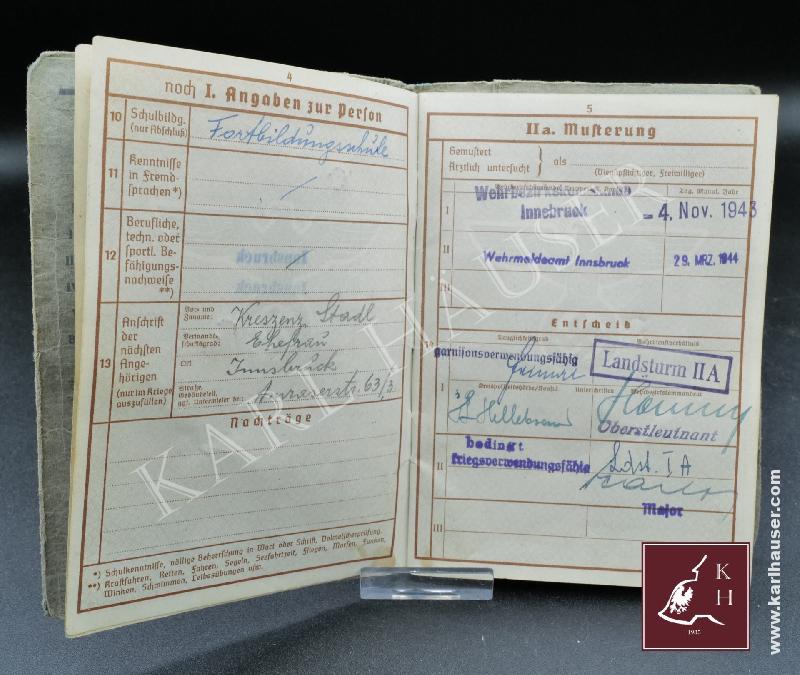 4
noch I. Angaben zur Person
10
Schulbildg.
(nur Abschluß)
Fortbildungsschule
11
Kenntnisse
in Fremd-
sprachen*)
12
Berufliche,
techn. oder
sportl. Be-
fähigungs-
nachweise
**)
Innsbruck
Innsbruck
13
Anschrift
der
nächsten
Ange-
hörigen
(nur im Kriege
auszufüllen)
Vor- und
Zuname:
Kreszenz Stadl
Verwandt-
schaftsgrad:
Ehefrau
Ort
Innsbruck
Straße,
Amraserstr. 63/3.
Nachträge
*) Schulkenntnisse, völlige Beherrschung in Wort oder Schrift, Dolmetscherprüfung.
**) Kraftfahren, Reiten, Fahren, Segeln, Seefahrtzeit, Fliegen, Morsen, Funken,
Winken, Schwimmen, Leibesübungen usw.
5
IIa. Musterung
Gemustert
Ärztlich untersucht } als
(Dienstpflichtiger, Freiwilliger)
Tag, Monat, Jahr
I
Wehrbezirkskommando
Innsbruck
- 4. Nov. 1943
II
Wehrmeldeamt Innsbruck
29. MRZ. 1944
III
Entscheid
14
Tauglichkeitsgrad
Wehrdienstverhältnis
garnisonsverwendungsfähig
Landsturm II A
I
Unterschriften
Oberstleutnant
II
bedingt
kriegsverwendungsfähig
Ldst. I A
Major
III
KARL HAUSER
K
H
www.karlhauser.com